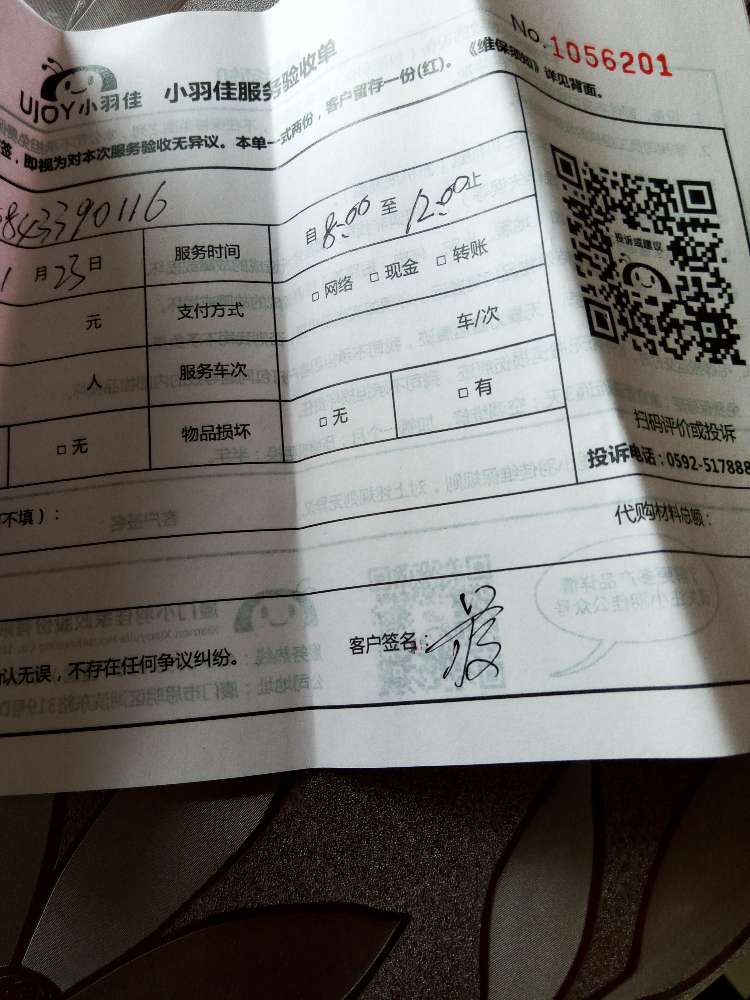 No.1056201
UJOY小羽佳 小羽佳服务验收单
签，即视为对本次服务验收无异议。本单一式两份，客户留存一份(红)。《维保须知》详见背面。
843390116
月23日 服务时间 自8:00至12:00止
投诉或建议
元 支付方式 □网络 □现金 □转账
人 服务车次 车/次
□无 物品损坏 □无 □有
扫码评价或投诉
投诉电话：0592-517888
不填）：
代购材料总额：
认无误，不存在任何争议纠纷。 客户签名：